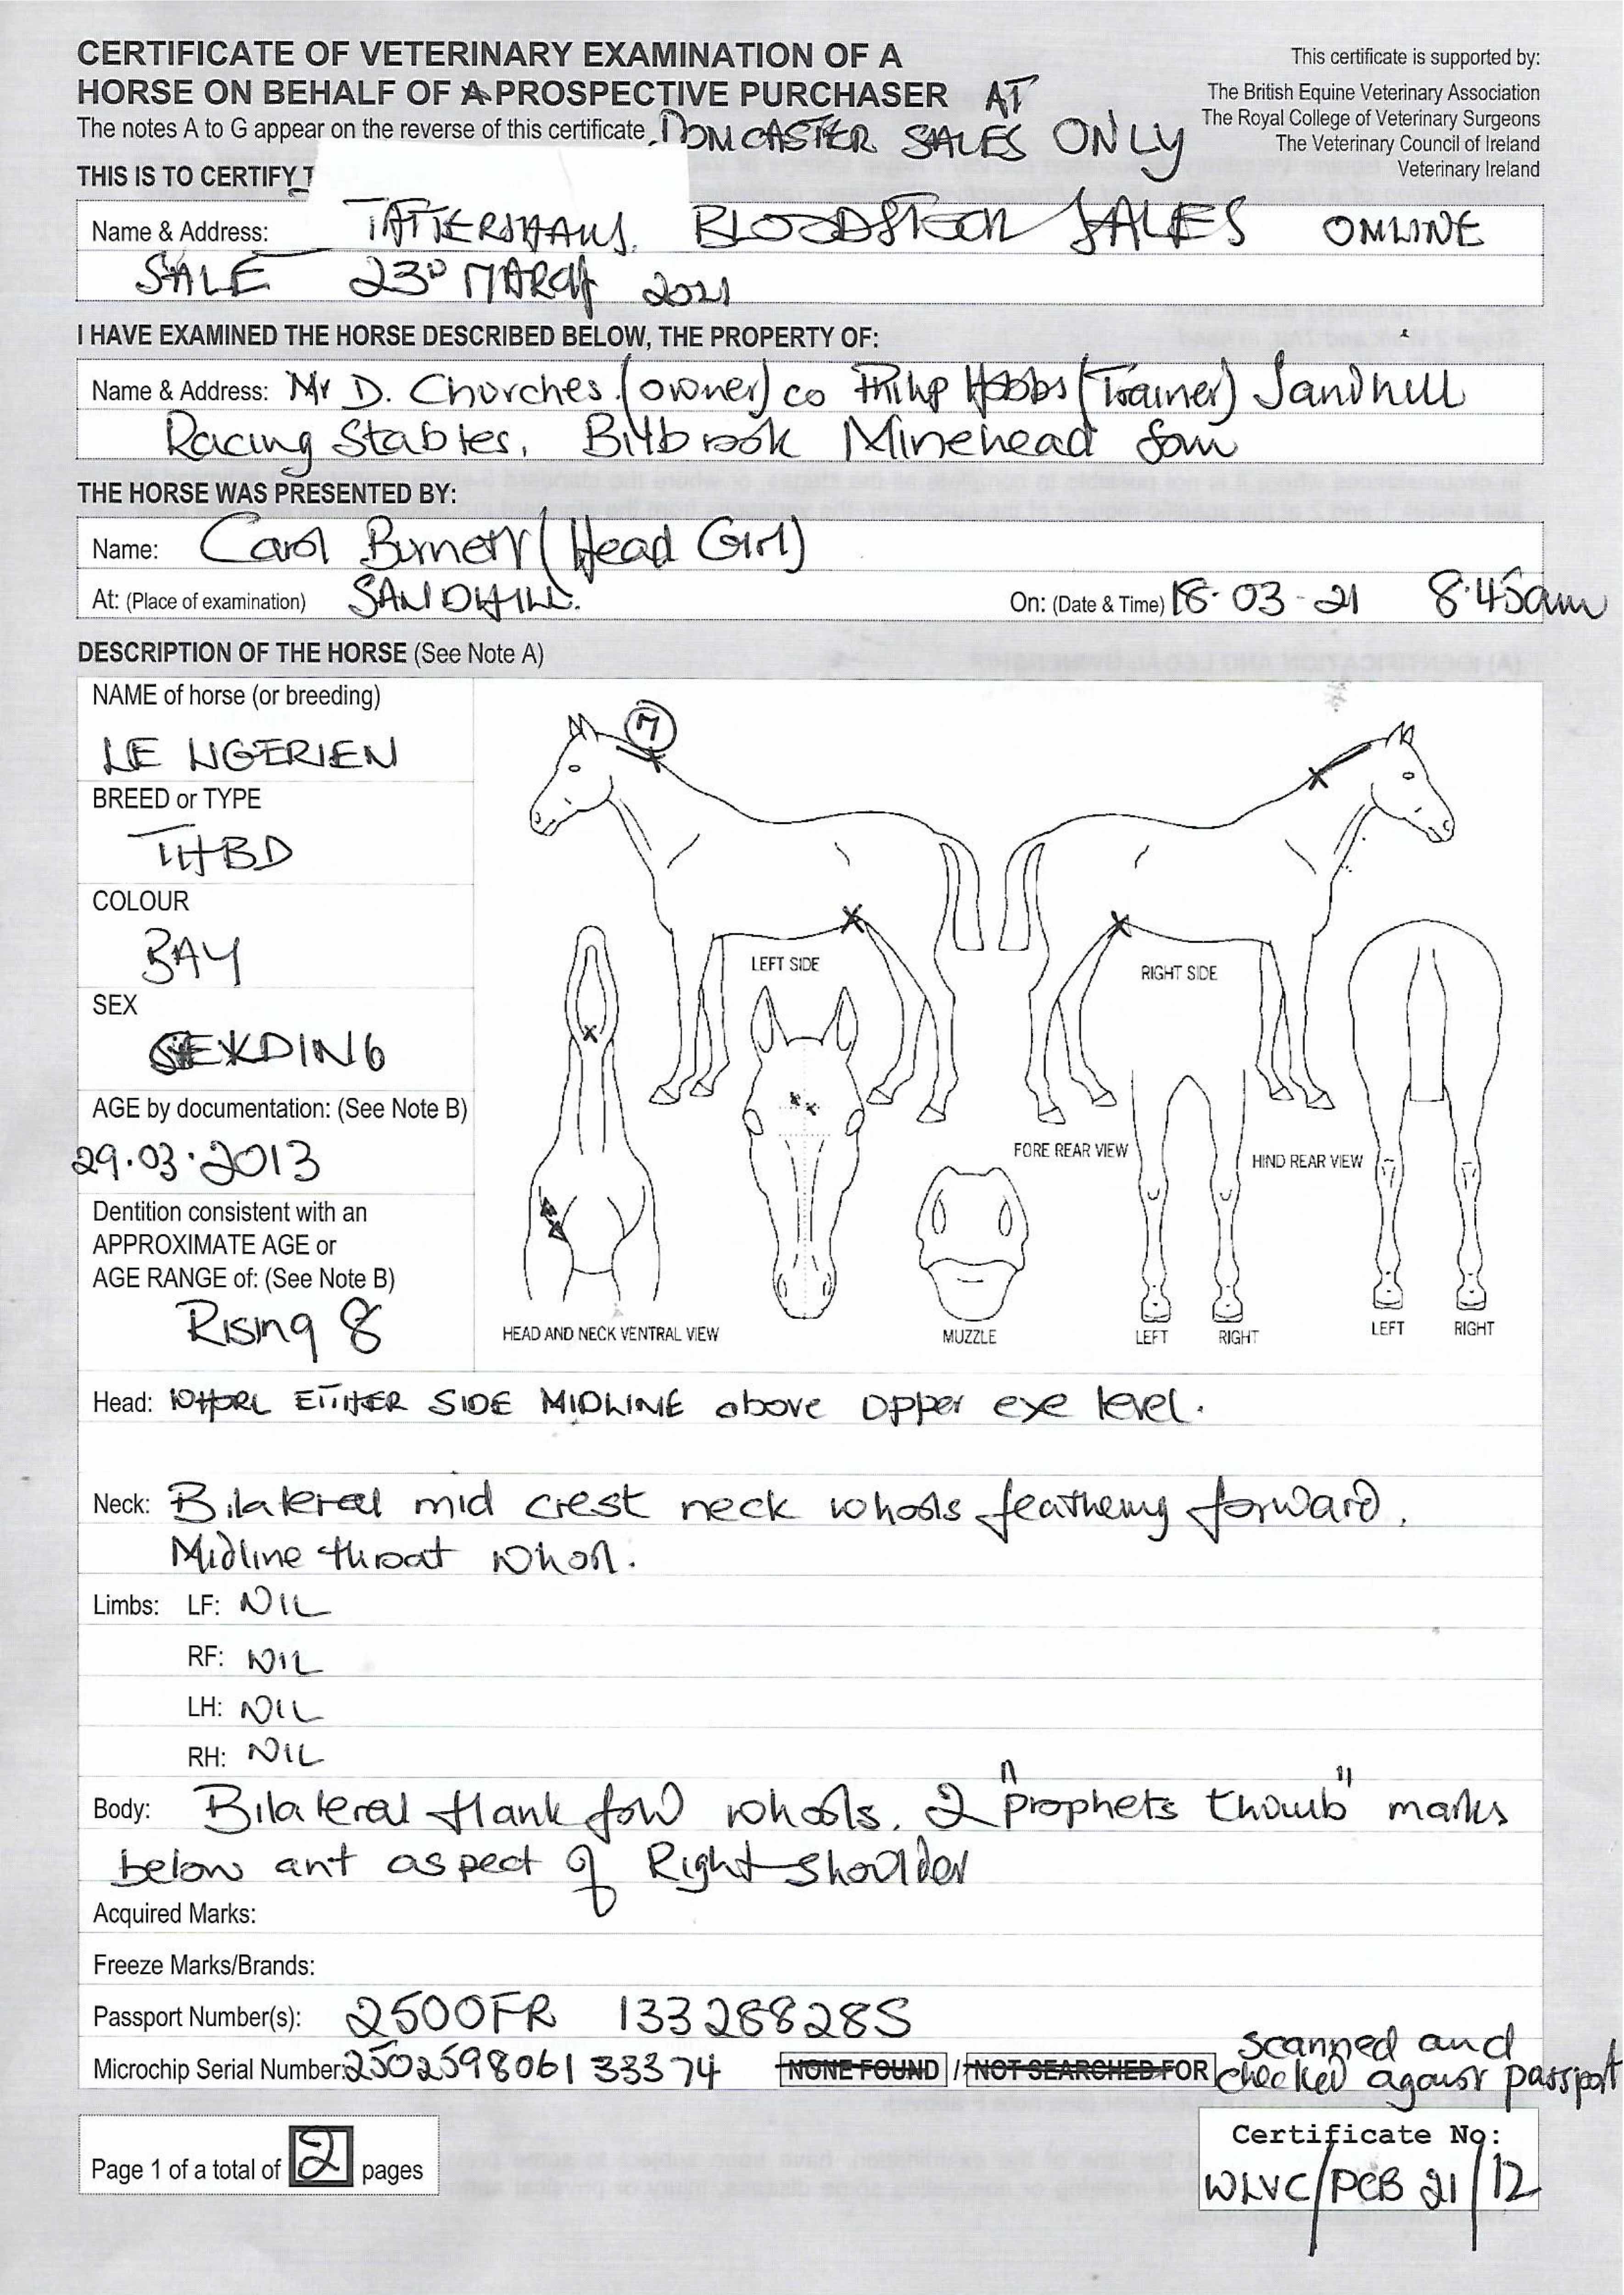 CERTIFICATE OF VETERINARY EXAMINATION OF A
HORSE ON BEHALF OF A PROSPECTIVE PURCHASER AT
The notes A to G appear on the reverse of this certificate. DONCASTER SALES ONLY
This certificate is supported by:
The British Equine Veterinary Association
The Royal College of Veterinary Surgeons
The Veterinary Council of Ireland
Veterinary Ireland
THIS IS TO CERTIFY T
Name & Address: TATTERSHALLS BLOODSTOCK SALES ONLINE
SALE 23D MARCH 2021
I HAVE EXAMINED THE HORSE DESCRIBED BELOW, THE PROPERTY OF:
Name & Address: Mr D. Churches (owner) co Philip Hobbs (Trainer) Sandhill
Racing Stables, Bilbrook Minehead Som
THE HORSE WAS PRESENTED BY:
Name: Carol Burnett (Head Girl)
At: (Place of examination) SANDHILL. On: (Date & Time) 18-03-21 8.45am
DESCRIPTION OF THE HORSE (See Note A)
NAME of horse (or breeding)
LE LIGERIEN
BREED or TYPE
THBD
COLOUR
BAY
SEX
GELDING
AGE by documentation: (See Note B)
29.03.2013
Dentition consistent with an
APPROXIMATE AGE or
AGE RANGE of: (See Note B)
Rising 8
M
LEFT SIDE
RIGHT SIDE
FORE REAR VIEW
HIND REAR VIEW
HEAD AND NECK VENTRAL VIEW
MUZZLE
LEFT RIGHT
LEFT RIGHT
Head: WHORL EITHER SIDE MIDLINE above upper eye level.
Neck: Bilateral mid crest neck whorls feathering forward.
Midline throat whorl.
Limbs: LF: NIL
RF: NIL
LH: NIL
RH: NIL
Body: Bilateral flank fold whorls. 2 "prophets thumb" marks
below ant aspect of Right shoulder
Acquired Marks:
Freeze Marks/Brands:
Passport Number(s): 2500FR 13328828S
Microchip Serial Number: 250259806133374 NONE FOUND / NOT SEARCHED FOR scanned and
checked against passport
Page 1 of a total of 2 pages
Certificate No:
WLVC/PCB 21/12